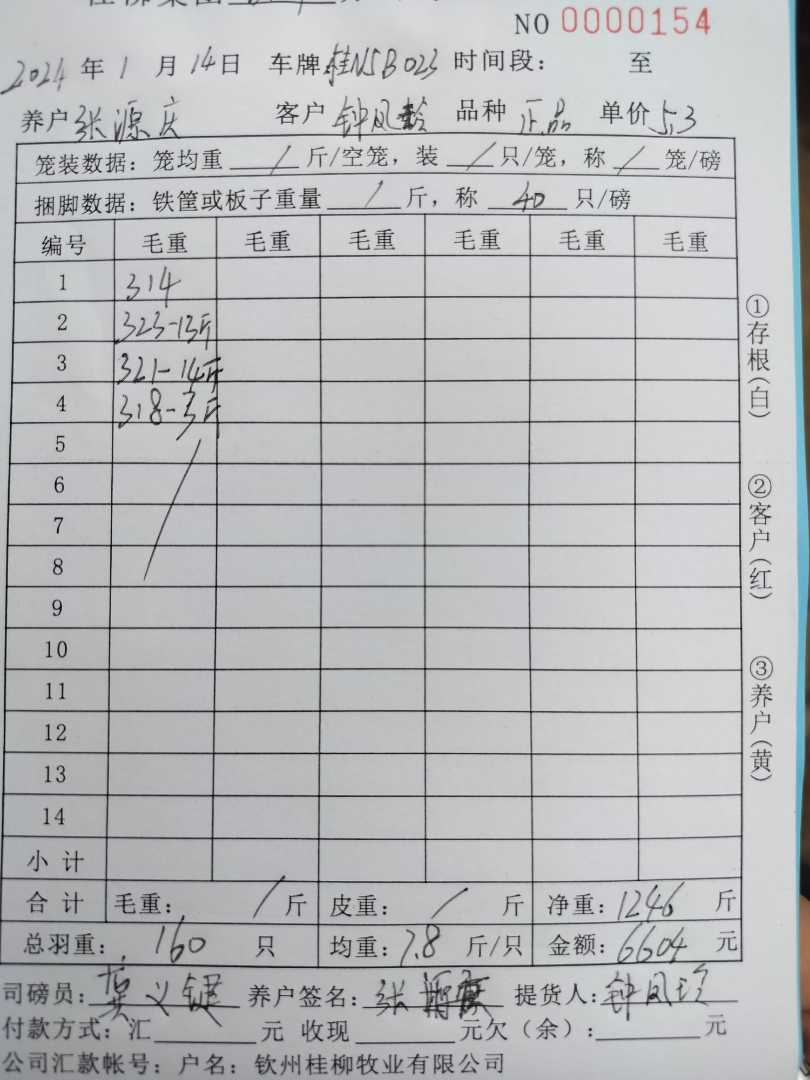 NO 0000154
2024 年 1 月 14 日 车牌 桂N5B023 时间段： 至
养户 张源庆 客户 钟凤龄 品种 正品 单价 5.3
笼装数据：笼均重 / 斤/空笼，装 / 只/笼，称 / 笼/磅
捆脚数据：铁筐或板子重量 / 斤，称 40 只/磅
编号 毛重 毛重 毛重 毛重 毛重 毛重
1 314
2 323-13斤
3 321-14斤
4 318-3斤
5
6
7
8
9
10
11
12
13
14
小计
合计 毛重： / 斤 皮重： / 斤 净重：1246 斤
总羽重： 160 只 均重：7.8 斤/只 金额：6604 元
司磅员： 义 养户签名：张 提货人：钟凤玲
付款方式：汇 元 收现 元欠（余）： 元
公司汇款帐号：户名：钦州桂柳牧业有限公司
①存根(白)
②客户(红)
③养户(黄)